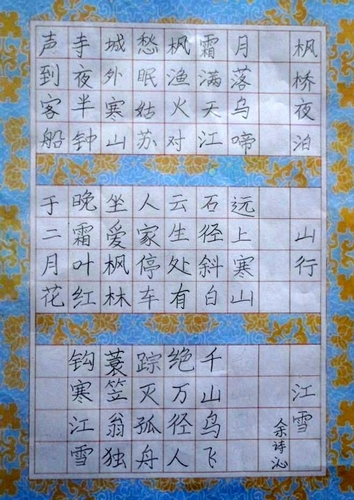 枫桥夜泊
月落乌啼
霜满天江
枫渔火对
愁眠姑苏
城外寒山
寺夜半钟
声到客船
山行
远上寒山
石径斜白
云生处有
人家停车
坐爱枫林
晚霜叶红
于二月花
江雪
余诗沁
千山鸟飞
绝万径人
踪灭孤舟
蓑笠翁独
钩寒江雪